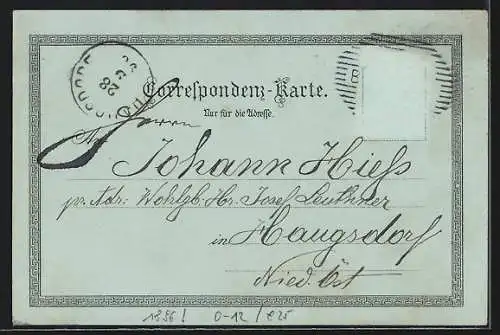 Correspondenz-Karte.
Nur für die Adresse.
An Herrn
Johann Hiess
pr. Adr: Wohlgb: Hr. Josef Leuthner
in Haugsdorf
Nied. Öst
1898! 0-12/